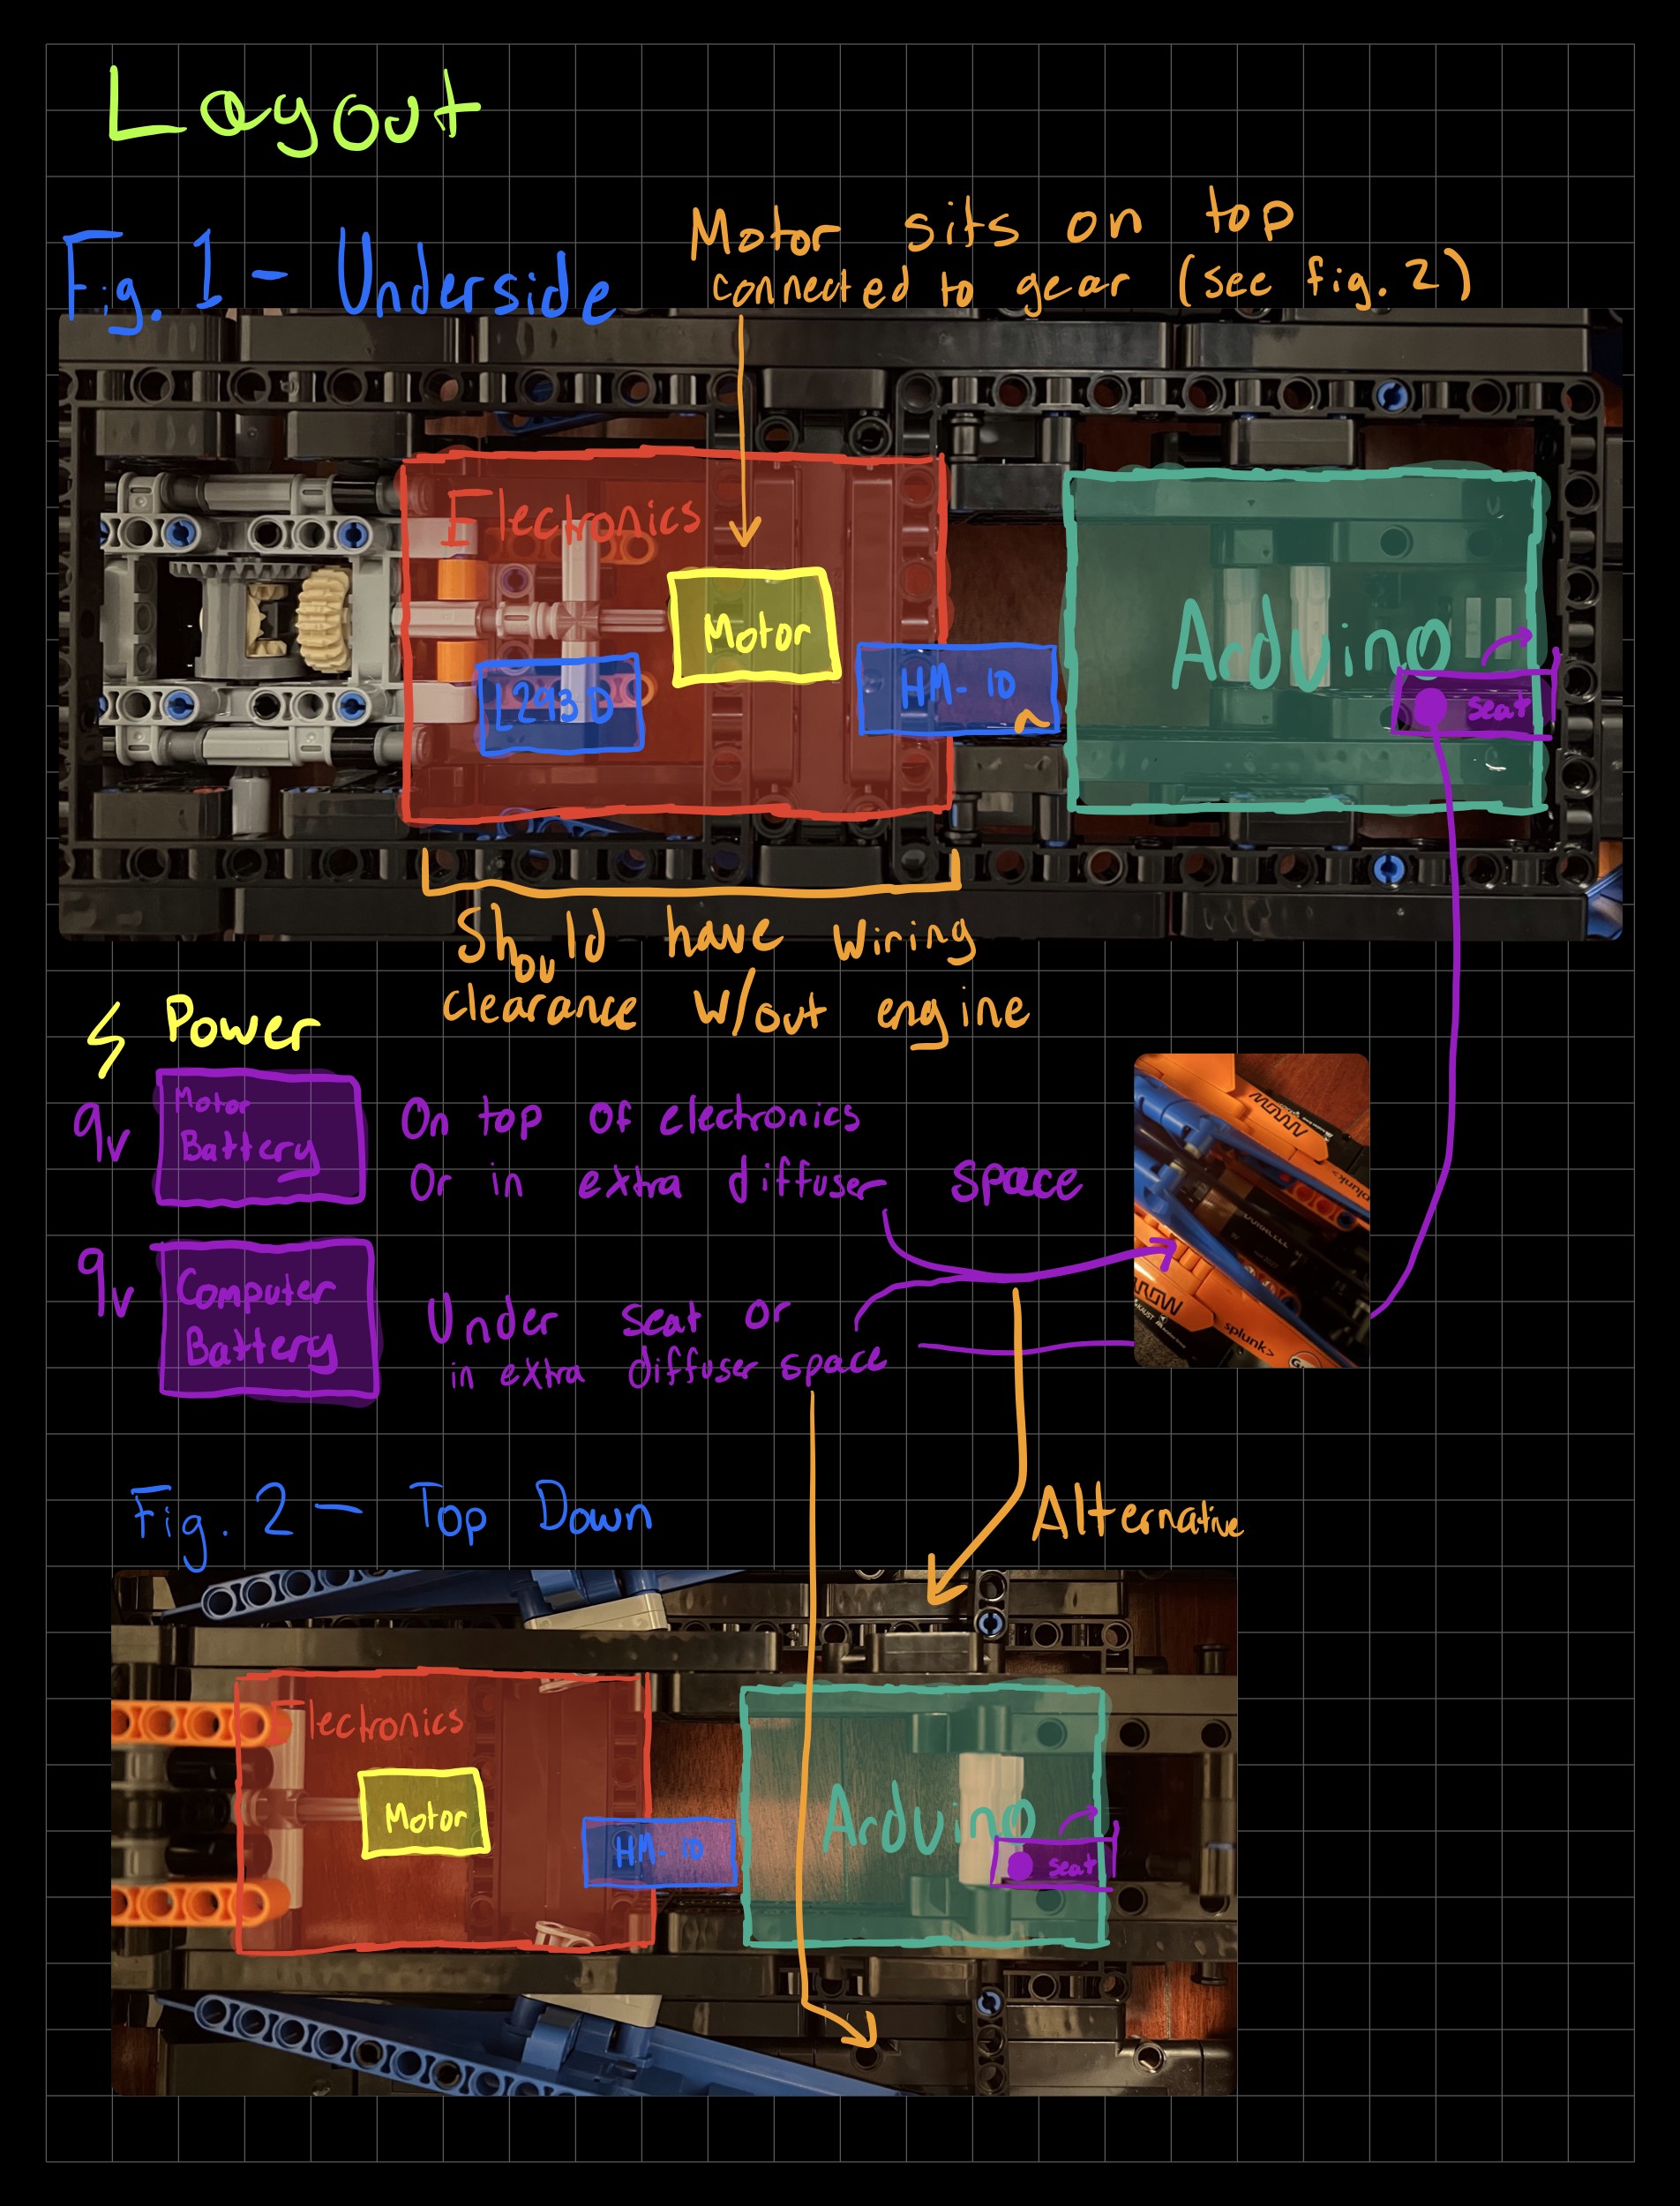 Layout
Fig. 1 - Underside
Motor sits on top
connected to gear (see fig. 2)
Electronics
Motor
L293D
HM-10
Arduino
seat
Should have wiring
clearance w/out engine
Power
9v
Motor
Battery
On top of electronics
Or in extra diffuser space
9v
Computer
Battery
Under seat or
in extra diffuser space
ARROW
splunk>
DURACELL
ARROW
splunk>
Fig. 2 - Top Down
Alternative
Electronics
Motor
HM-10
Arduino
seat